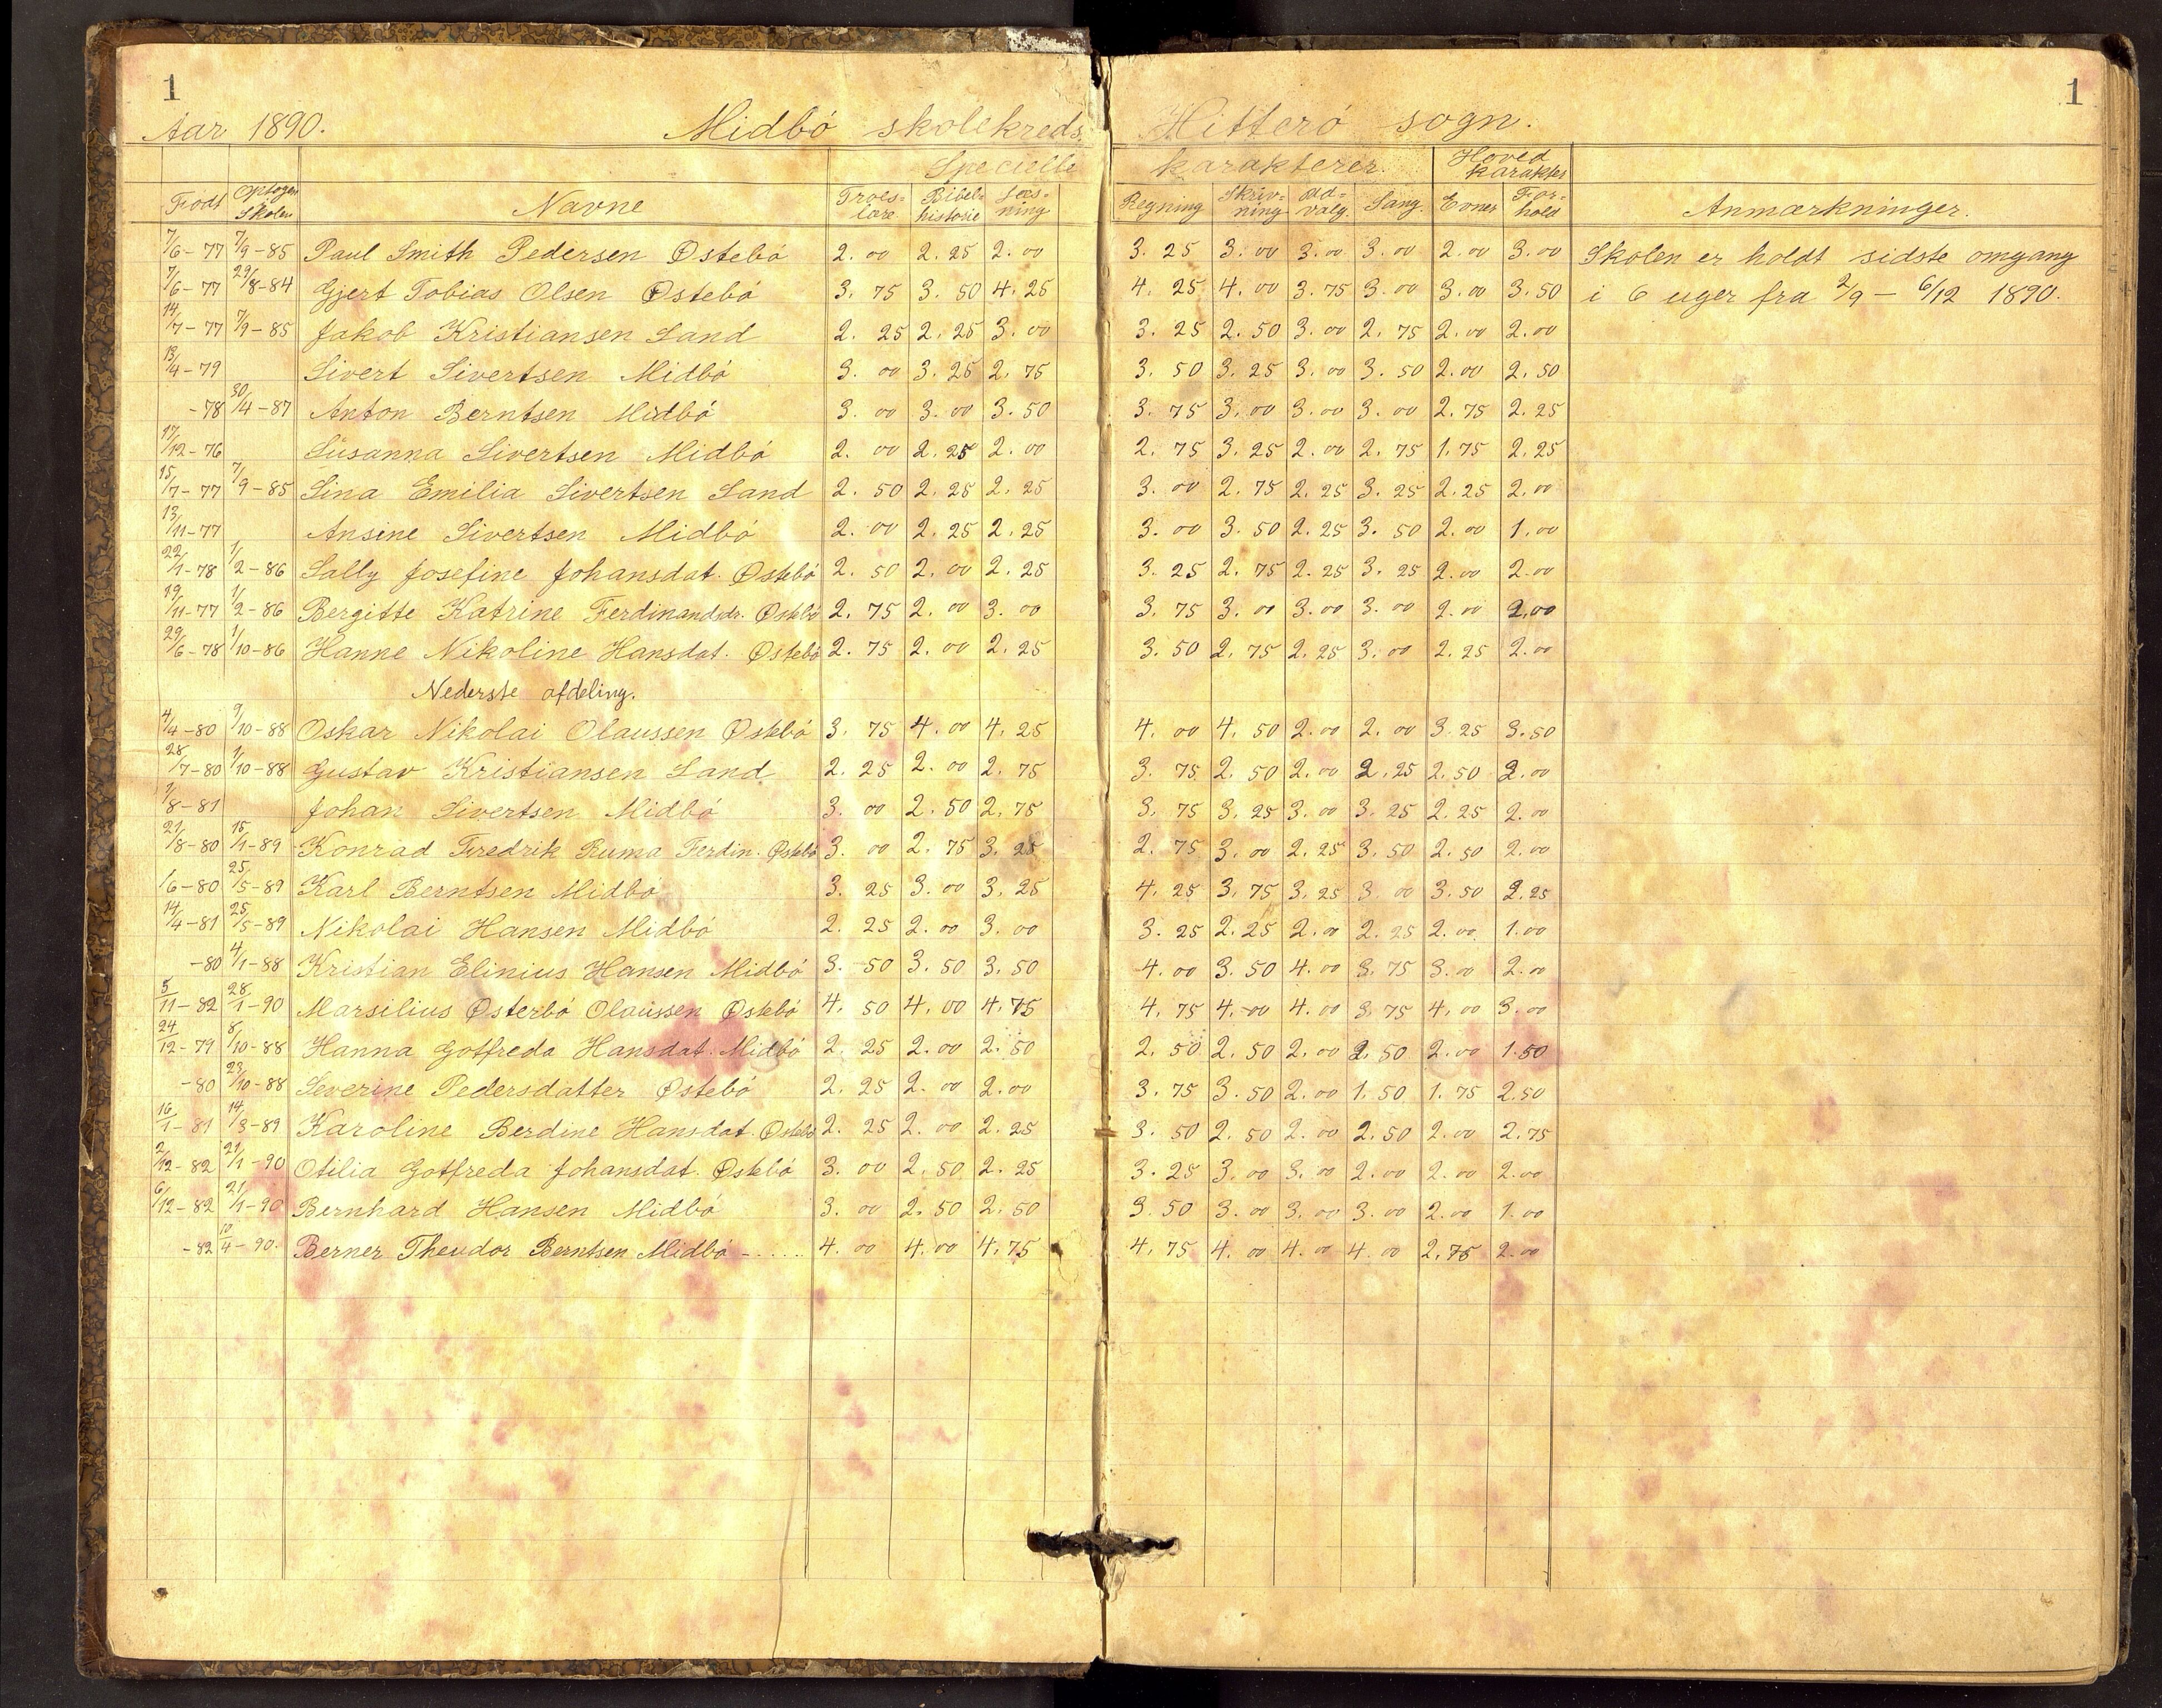 1 1
Aar 1890. Midbó skolekreds. Hitteró sogn.
Specielle karakterer. Hoved karakter
Født Optagen i Skolen Navne Troeslære. Bibelhistorie Læsning Regning Skrivning Udvalg. Sang. Evner Forhold Anmærkninger.
7/6-77 7/9-85 Paul Smith Pedersen Østebó 2.00 2.25 2.00 3.25 3.00 3.00 3.00 2.00 3.00 Skolen er holdt sidste omgang
7/6-77 29/8-84 Gjert Tobias Olsen Østebó 3.75 3.50 4.25 4.25 4.00 3.75 3.00 3.00 3.50 i 6 uger fra 2/9 - 6/12 1890.
14/7-77 7/9-85 Jakob Kristiansen Sand 2.25 2.25 3.00 3.25 2.50 3.00 2.75 2.00 2.00
13/4-79 Sivert Sivertsen Midbó 3.00 3.25 2.75 3.50 3.25 3.00 3.50 2.00 2.50
-78 30/4-87 Anton Berntsen Midbó 3.00 3.00 3.50 3.75 3.00 3.00 3.00 2.75 2.25
17/12-76 Susanna Sivertsen Midbó 2.00 2.25 2.00 2.75 3.25 2.00 2.75 1.75 2.25
15/7-77 7/9-85 Sina Emilia Sivertsen Sand 2.50 2.25 2.25 3.00 2.75 2.25 3.25 2.25 2.00
13/11-77 Ansine Sivertsen Midbó 2.00 2.25 2.25 3.00 3.50 2.25 3.50 2.00 1.00
22/1-78 1/2-86 Sally Josefine Johansdat. Østebó 2.50 2.00 2.25 3.25 2.75 2.25 3.25 2.00 2.00
19/11-77 1/2-86 Bergitte Katrine Ferdinandsdr. Østebó 2.75 2.00 3.00 3.75 3.00 3.00 3.00 2.00 2.00
29/6-78 1/10-86 Hanne Nikoline Hansdat. Østebó 2.75 2.00 2.25 3.50 2.75 2.25 3.00 2.25 2.00
Nederste afdeling.
4/4-80 9/10-88 Oskar Nikolai Olaussen Østebó 3.75 4.00 4.25 4.00 4.50 2.00 2.00 3.25 3.50
28/7-80 1/10-88 Gustav Kristiansen Sand 2.25 2.00 2.75 3.75 2.50 2.00 2.25 2.50 2.00
8-81 Johan Sivertsen Midbó 3.00 2.50 2.75 3.75 3.25 3.00 3.25 2.25 2.00
21/8-80 15/1-89 Konrad Fredrik Ruma Ferdin. Østebó 3.00 2.75 3.25 2.75 3.00 2.25 3.50 2.50 2.00
/6-80 25/5-89 Karl Berntsen Midbó 3.25 3.00 3.25 4.25 3.75 3.25 3.00 3.50 2.25
14/4-81 25/5-89 Nikolai Hansen Midbó 2.25 2.00 3.00 3.25 2.25 2.00 2.25 2.00 1.00
-80 4/1-88 Kristian Elinius Hansen Midbó 3.50 3.50 3.50 4.00 3.50 4.00 3.75 3.00 2.00
5/11-82 28/1-90 Marsilius Østerbó Olaussen Østebó 4.50 4.00 4.75 4.75 4.00 4.00 3.75 4.00 3.00
24/12-79 8/10-88 Hanna Gotfreda Hansdat. Midbó 2.25 2.00 2.50 2.50 2.50 2.00 2.50 2.00 1.50
-80 23/10-88 Severine Pedersdatter Østebó 2.25 2.00 2.00 3.75 3.50 2.00 1.50 1.75 2.50
16/1-81 14/3-89 Karoline Berdine Hansdat. Østebó 2.25 2.00 2.25 3.50 2.50 2.00 2.50 2.00 2.75
2/12-82 21/1-90 Otilia Gotfreda Johansdat. Østebó 3.00 2.50 2.25 3.25 3.00 3.00 2.00 2.00 2.00
6/12-82 21/1-90 Bernhard Hansen Midbó 3.00 2.50 2.50 3.50 3.00 3.00 3.00 2.00 1.00
-82 10/4-90. Berner Theodor Berntsen Midbó - ..... 4.00 4.00 4.75 4.75 4.00 4.00 4.00 2.75 2.00